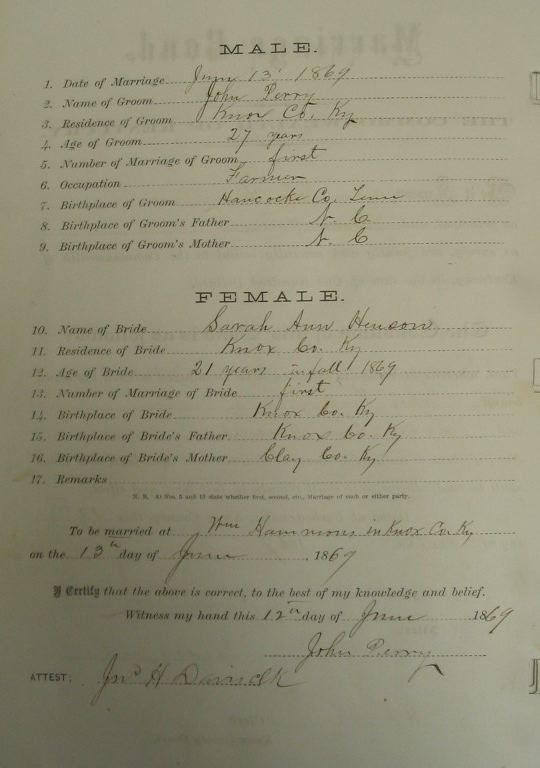 MALE.
1. Date of Marriage June 13' 1869
2. Name of Groom John Perry
3. Residence of Groom Knox Co. Ky
4. Age of Groom 27 years
5. Number of Marriage of Groom first
6. Occupation Farmer
7. Birthplace of Groom Hancocke Co. Tenn
8. Birthplace of Groom's Father N. C
9. Birthplace of Groom's Mother N. C
FEMALE.
10. Name of Bride Sarah Ann Henson
11. Residence of Bride Knox Co. Ky
12. Age of Bride 21 years in fall 1869
13. Number of Marriage of Bride first
14. Birthplace of Bride Knox Co. Ky
15. Birthplace of Bride's Father Knox Co. Ky
16. Birthplace of Bride's Mother Clay Co. Ky
17. Remarks
N. B. At Nos. 5 and 13 state whether first, second, etc., Marriage of each or either party.
To be married at Wm Hammons in Knox Co. Ky
on the 13th day of June, 1869
I Certify that the above is correct, to the best of my knowledge and belief.
Witness my hand this 12th day of June 1869
John Perry
ATTEST: Jno H Davis clk